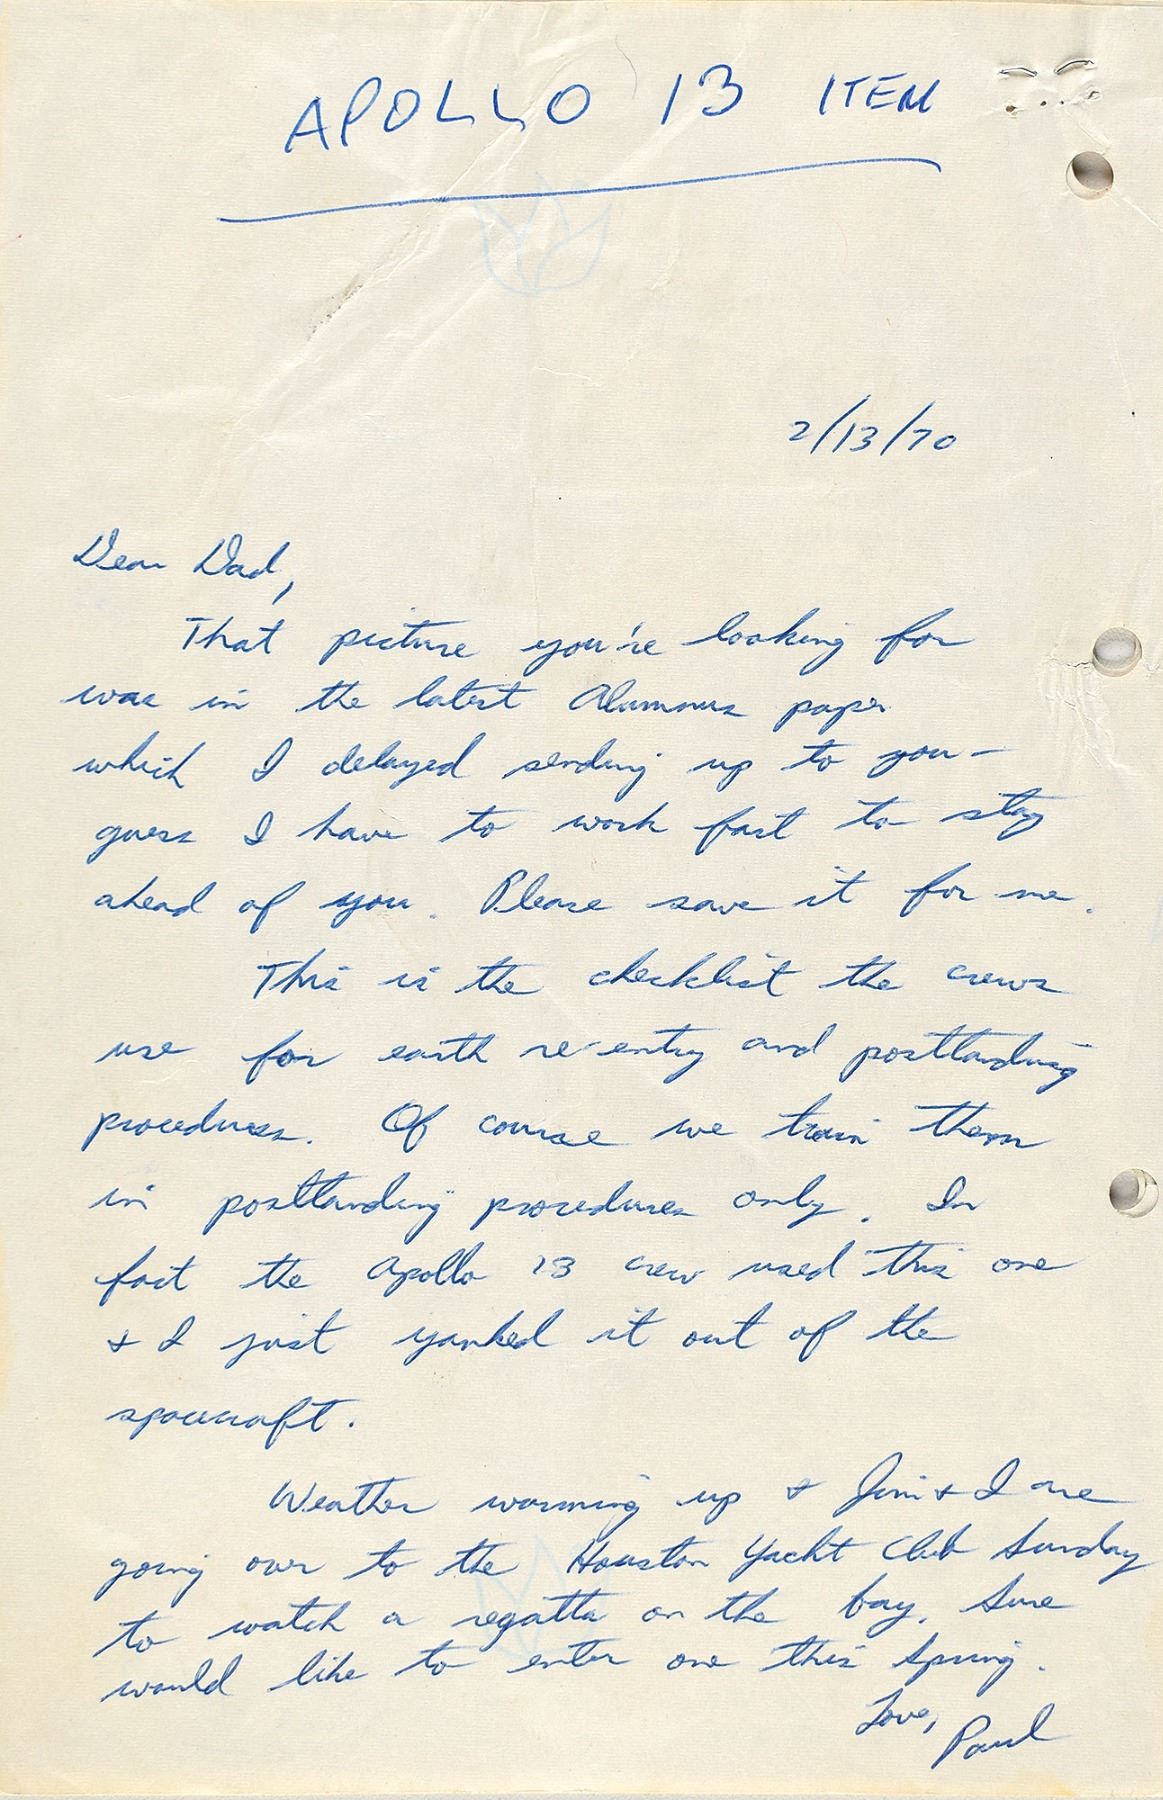 APOLLO 13 ITEM
2/13/70
Dear Dad,
That picture you're looking for
was in the latest Alumnus paper
which I delayed sending up to you –
guess I have to work fast to stay
ahead of you. Please save it for me.
This is the checklist the crews
use for earth re-entry and postlanding
procedures. Of course we train them
in postlanding procedures only. In
fact the Apollo 13 crew used this one
+ I just yanked it out of the
spacecraft.
Weather warming up + Jim + I are
going over to the Houston Yacht Club Sunday
to watch a regatta on the bay. Sure
would like to enter one this Spring.
Love,
Paul